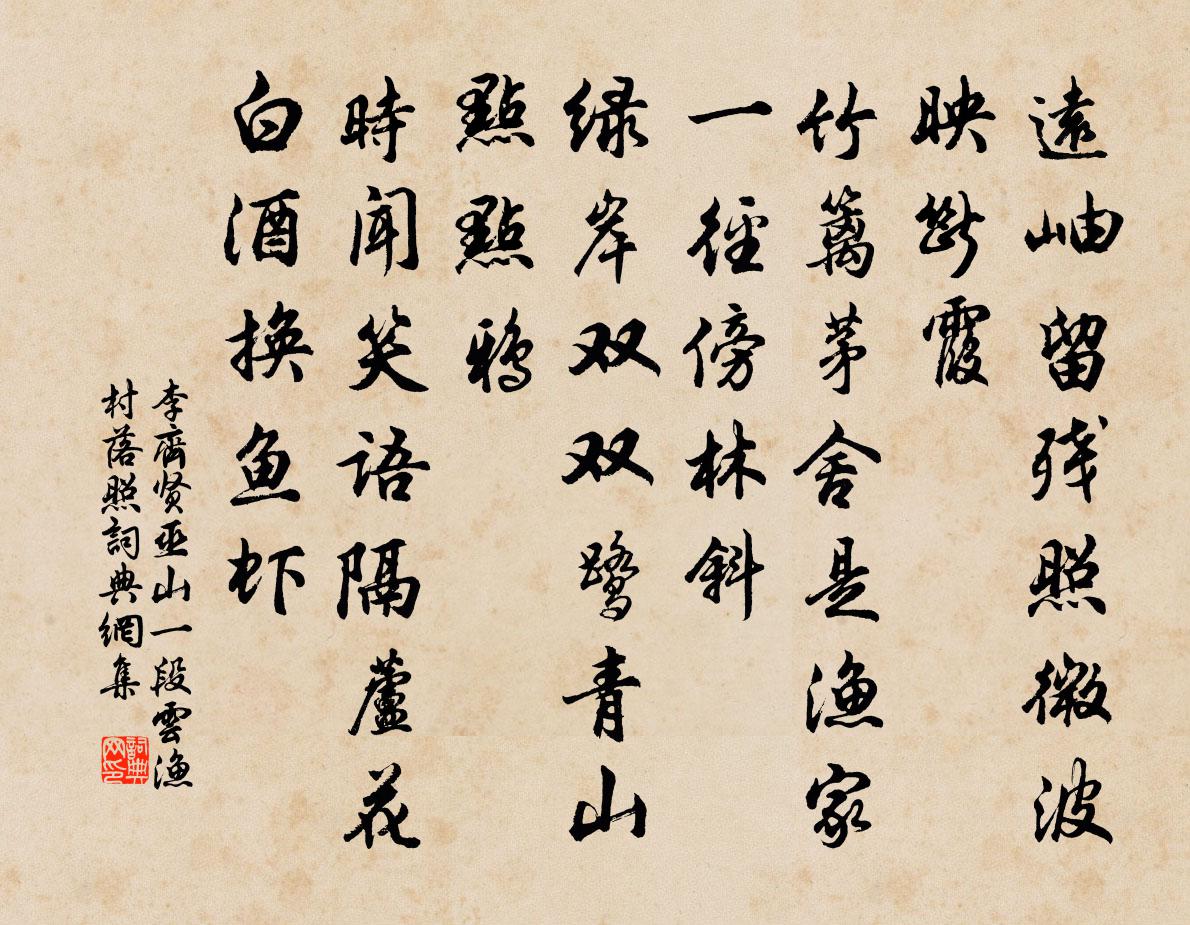 遠岫留残照微波
映斷霞
竹籬茅舍是漁家
一徑傍林斜
緑岸双双鹭青山
點點鴉
時闻笑语隔蘆花
白酒换鱼虾
李齊贤巫山一段雲渔
村落照詞典網集
詞典
网印